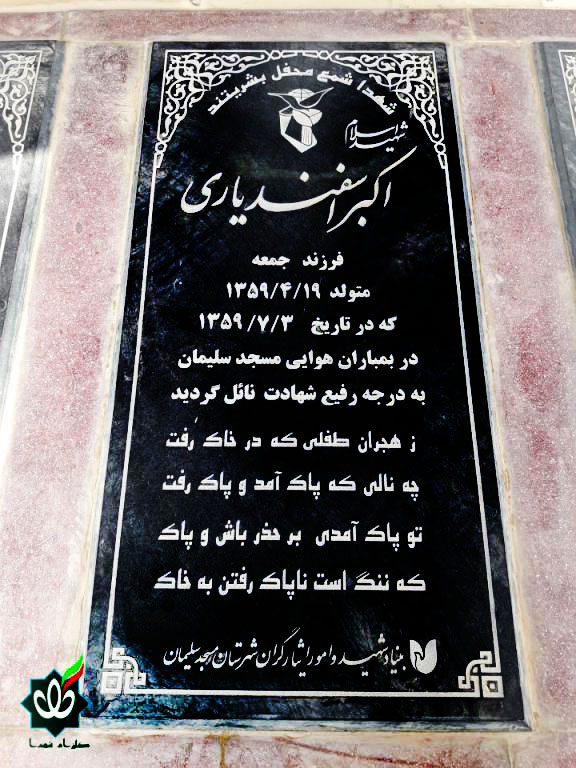 شهدا شمع محفل بشریتند
شهید اسلام
اکبر اسفندیاری
فرزند جمعه
متولد ۱۳۵۹/۴/۱۹
که در تاریخ ۱۳۵۹/۷/۳
در بمباران هوایی مسجد سلیمان
به درجه رفیع شهادت نائل گردید
ز هجران طفلی که در خاک رفت
چه نالی که پاک آمد و پاک رفت
تو پاک آمدی بر حذر باش و پاک
که ننگ است ناپاک رفتن به خاک
بنیاد شهید و امور ایثارگران شهرستان مسجدسلیمان